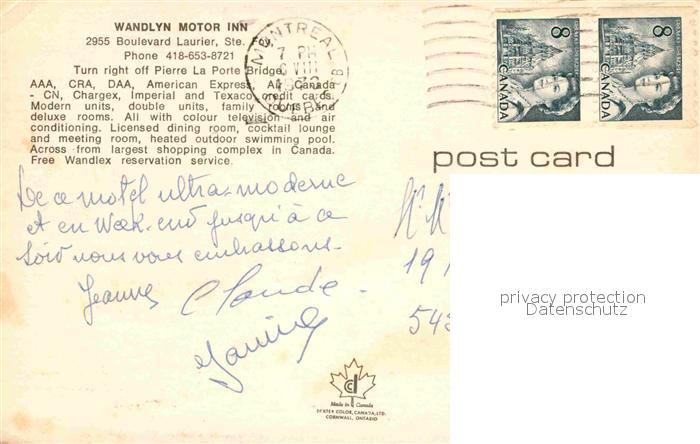 WANDLYN MOTOR INN
2955 Boulevard Laurier, Ste.
Phone 418-653-8721
Turn right off Pierre La Porte Bridge
AAA, CRA, DAA, American Express, Air Canada
- CN, Chargex, Imperial and Texaco credit cards.
Modern units, double units, family rooms and
deluxe rooms. All with colour television and air
conditioning. Licensed dining room, cocktail lounge
and meeting room, heater outdoor swimming pool.
Across from largest shopping complex in Canada.
Free Wandlex reservation service.
MONTREAL
7 PM
6 VIII
8
CANADA
8
CANADA
post card
De ce motel ultra-moderne
et en Week-end jusqu'à ce
soir nous vous embrassons-
Jeanne Claude-
19
543
privacy protection
Datenschutz
Made in Canada
DEXTER COLOR, CANADA, LTD.
CORNWALL, ONTARIO